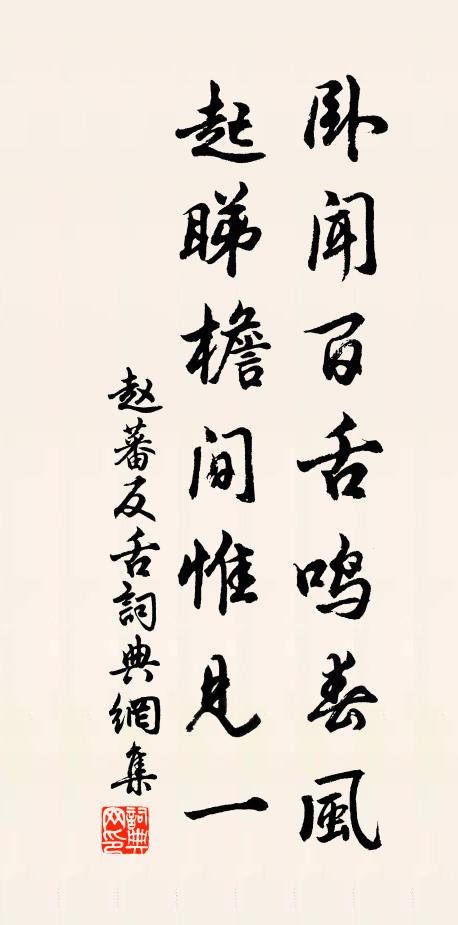 卧闻百舌鸣春风
起睇檐间惟见一
赵蕃反舌詞典網集
詞典網印